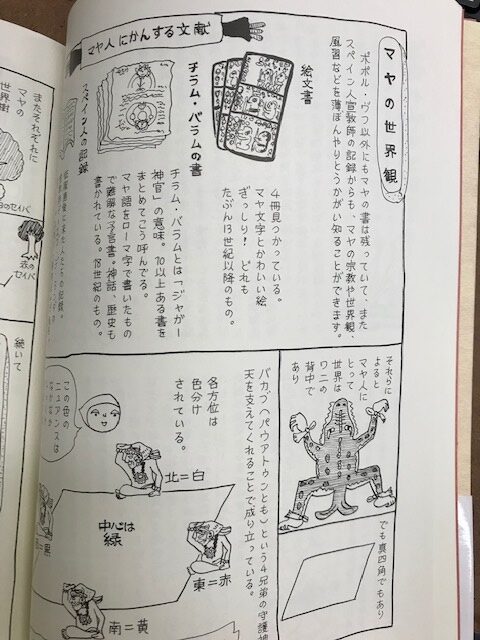 マヤの世界観
ポポル・ヴフ以外にもマヤの書は残っていて、また
スペイン人宣教師の記録からも、マヤの宗教や世界観、
風習などを薄ぼんやりとうかがい知ることができます。
マヤ人にかんする文献
絵文書
4冊見つかっている。
マヤ文字とかわいい絵
ぎっしり! どれも
たぶん13世紀以降のもの。
チラム・バラムの書
チラム・バラムとは「ジャガー
神官」の意味。10以上ある書を
まとめてこう呼んでる。
マヤ語をローマ字で書いたもの
で難解な予言書。神話、歴史も
書かれている。18世紀のもの。
スペイン人の記録
それらに
よると
マヤ人に
とって
世界は
ワニの
背中で
あり
でも真四角でもあり
バカブ(パウアトゥンとも)という4兄弟の守護神
天を支えてくれることで成り立っている。
各方位は
色分け
されている。
この色の
ニュアンスは
北=白
中心は
緑
東=赤
南=黄
またそれぞれに
マヤの
世界樹
赤の
セイバ
続いて